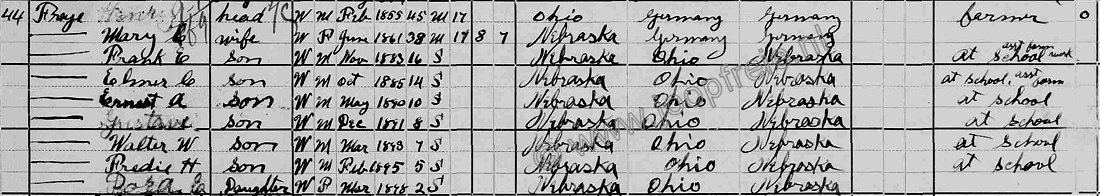 44 Head W M Feb 1855 45 M 17 Ohio Germany Germany farmer O
Mary C wife W F June 1861 38 M 17 8 7 Nebraska Germany Germany
Frank E Son W M Nov 1883 16 S Nebraska Ohio Nebraska at School asst farm work
Elmer C Son W M Oct 1885 14 S Nebraska Ohio Nebraska at School, asst farm
Ernest A Son W M May 1890 10 S Nebraska Ohio Nebraska at School
Gustave Son W M Dec 1891 8 S Nebraska Ohio Nebraska at School
Walter W Son W M Mar 1893 7 S Nebraska Ohio Nebraska at School
Fredie H Son W M Feb 1895 5 S Nebraska Ohio Nebraska at School
Daughter W F Mar 1898 2 S Nebraska Ohio Nebraska